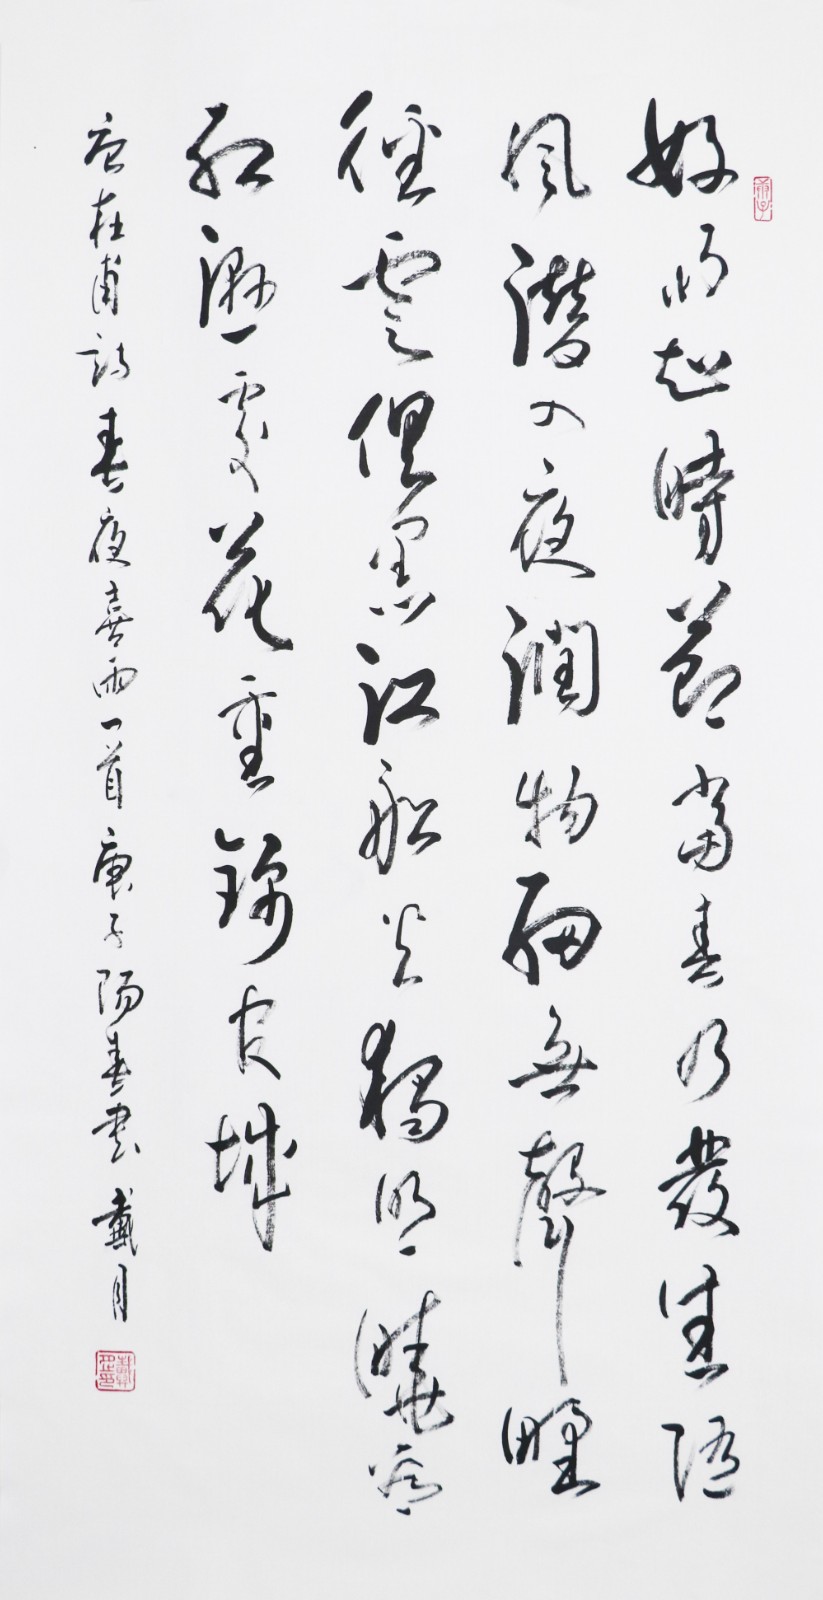 好雨知時節當春乃發生随
風潛入夜潤物細無聲野
徑雲俱黑江船火獨明曉看
紅濕處花重錦官城
唐杜甫詩春夜喜雨一首庚子陽春書戴月